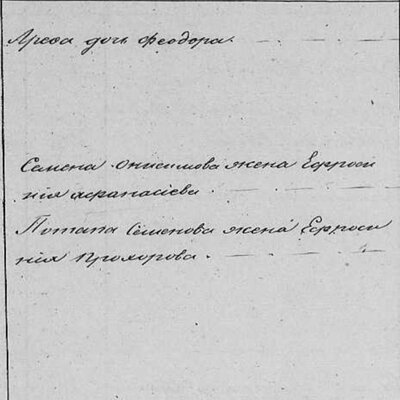 Арефа дочь Феодора.
Семена Онисимова жена Ефроси
нія Афанасіева.
Потапа Семенова жена Ефроси
нія Прохорова.